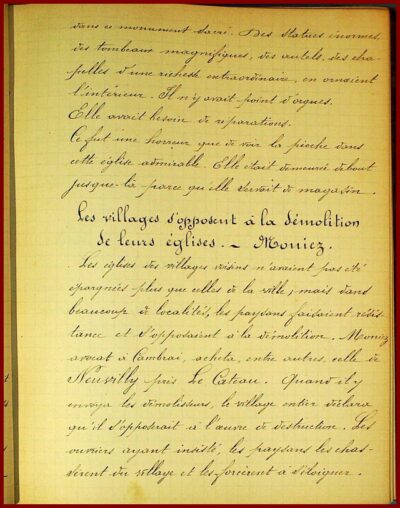 dans ce monument sacré. Des statues énormes,
des tombeaux magnifiques, des autels, des cha-
pelles d'une richesse extraordinaire, en ornaient
l'intérieur. Il n'y avait point d'orgues.
Elle avait besoin de réparations.
Ce fut une horreur que de voir la pioche dans
cette église admirable. Elle était demeurée debout
jusque-là parce qu'elle servait de magasin.
Les villages s'opposent à la démolition
de leurs églises. - Moniez.
Les églises des villages voisins n'avaient pas été
épargnées plus que celles de la ville; mais dans
beaucoup de localités, les paysans faisaient résis-
tance et s'opposaient à la démolition. Moniez
avocat à Cambrai, acheta, entre autres, celle de
Neuvilly près Le Cateau. Quand il y
envoya les démolisseurs, le village entier déclara
qu'il s'opposerait à l'œuvre de destruction. Les
ouvriers ayant insisté, les paysans les chas-
sèrent du village et les forcèrent à s'éloigner.